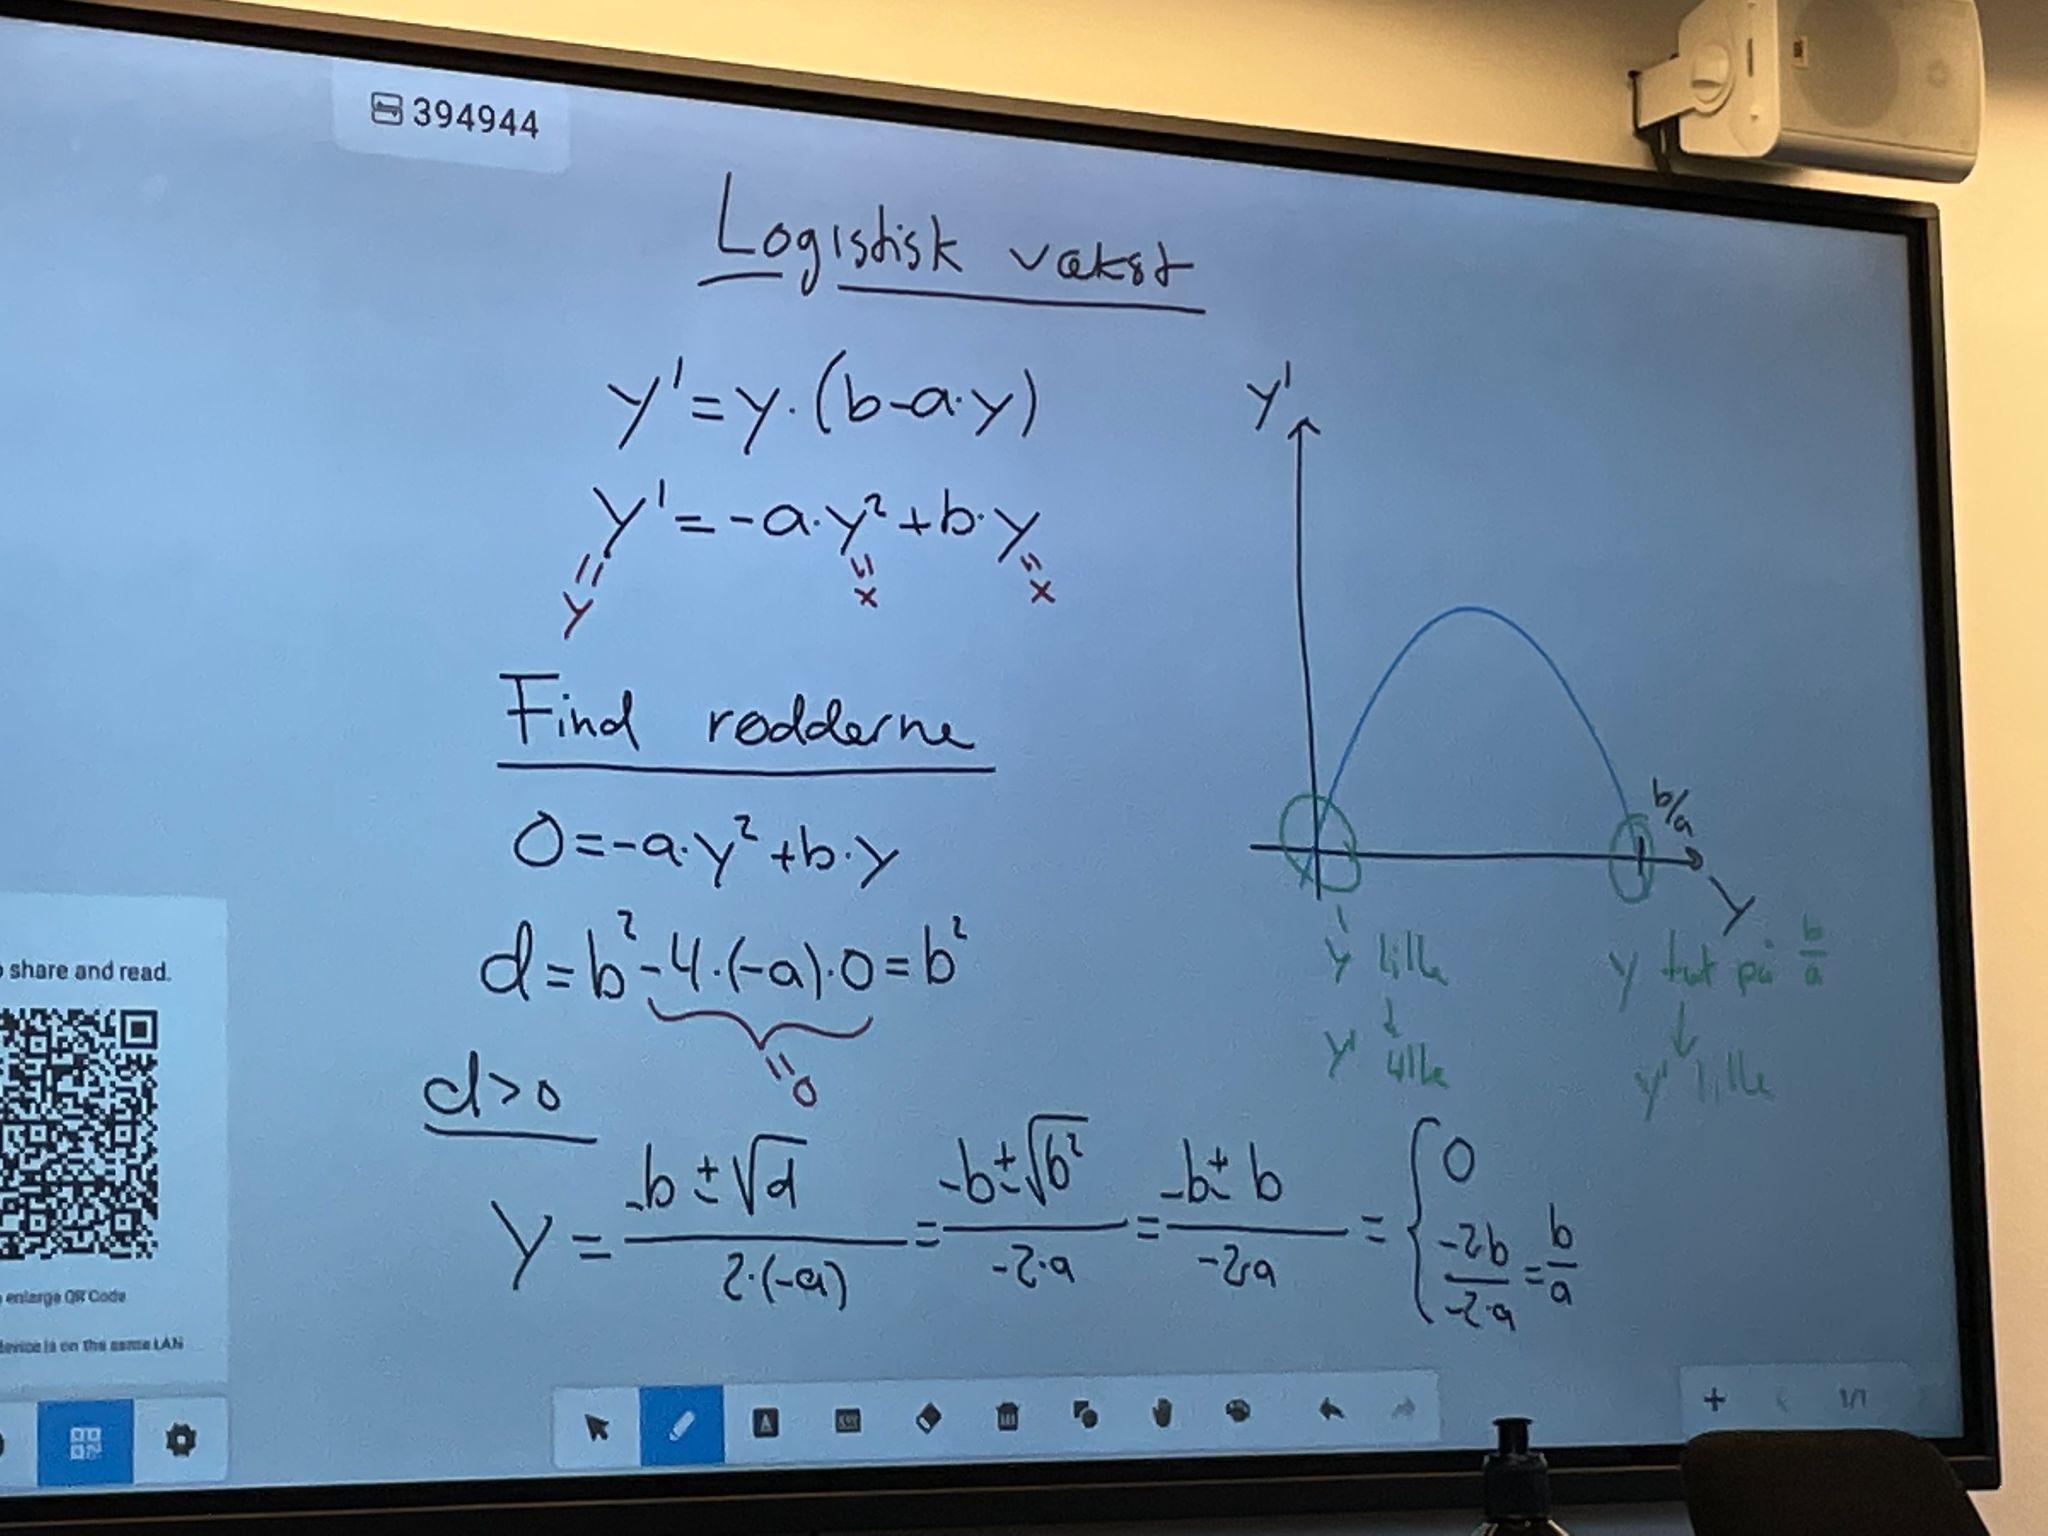 394944
Logistisk vækst
y' = y · (b - a · y)
y' = -a · y² + b · y
= y = x = x
Find rødderne
0 = -a · y² + b · y
d = b² - 4 · (-a) · 0 = b²
= 0
d > 0
y = (-b ± √d) / (2 · (-a)) = (-b ± √b²) / (-2 · a) = (-b ± b) / (-2a) = { 0
-2b / (-2 · a) = b/a
y'
b/a
y
y lille
↓
y' lille
y tæt på b/a
↓
y' lille
share and read.
enlarge QR Code
device is on the same LAN
A
1/1